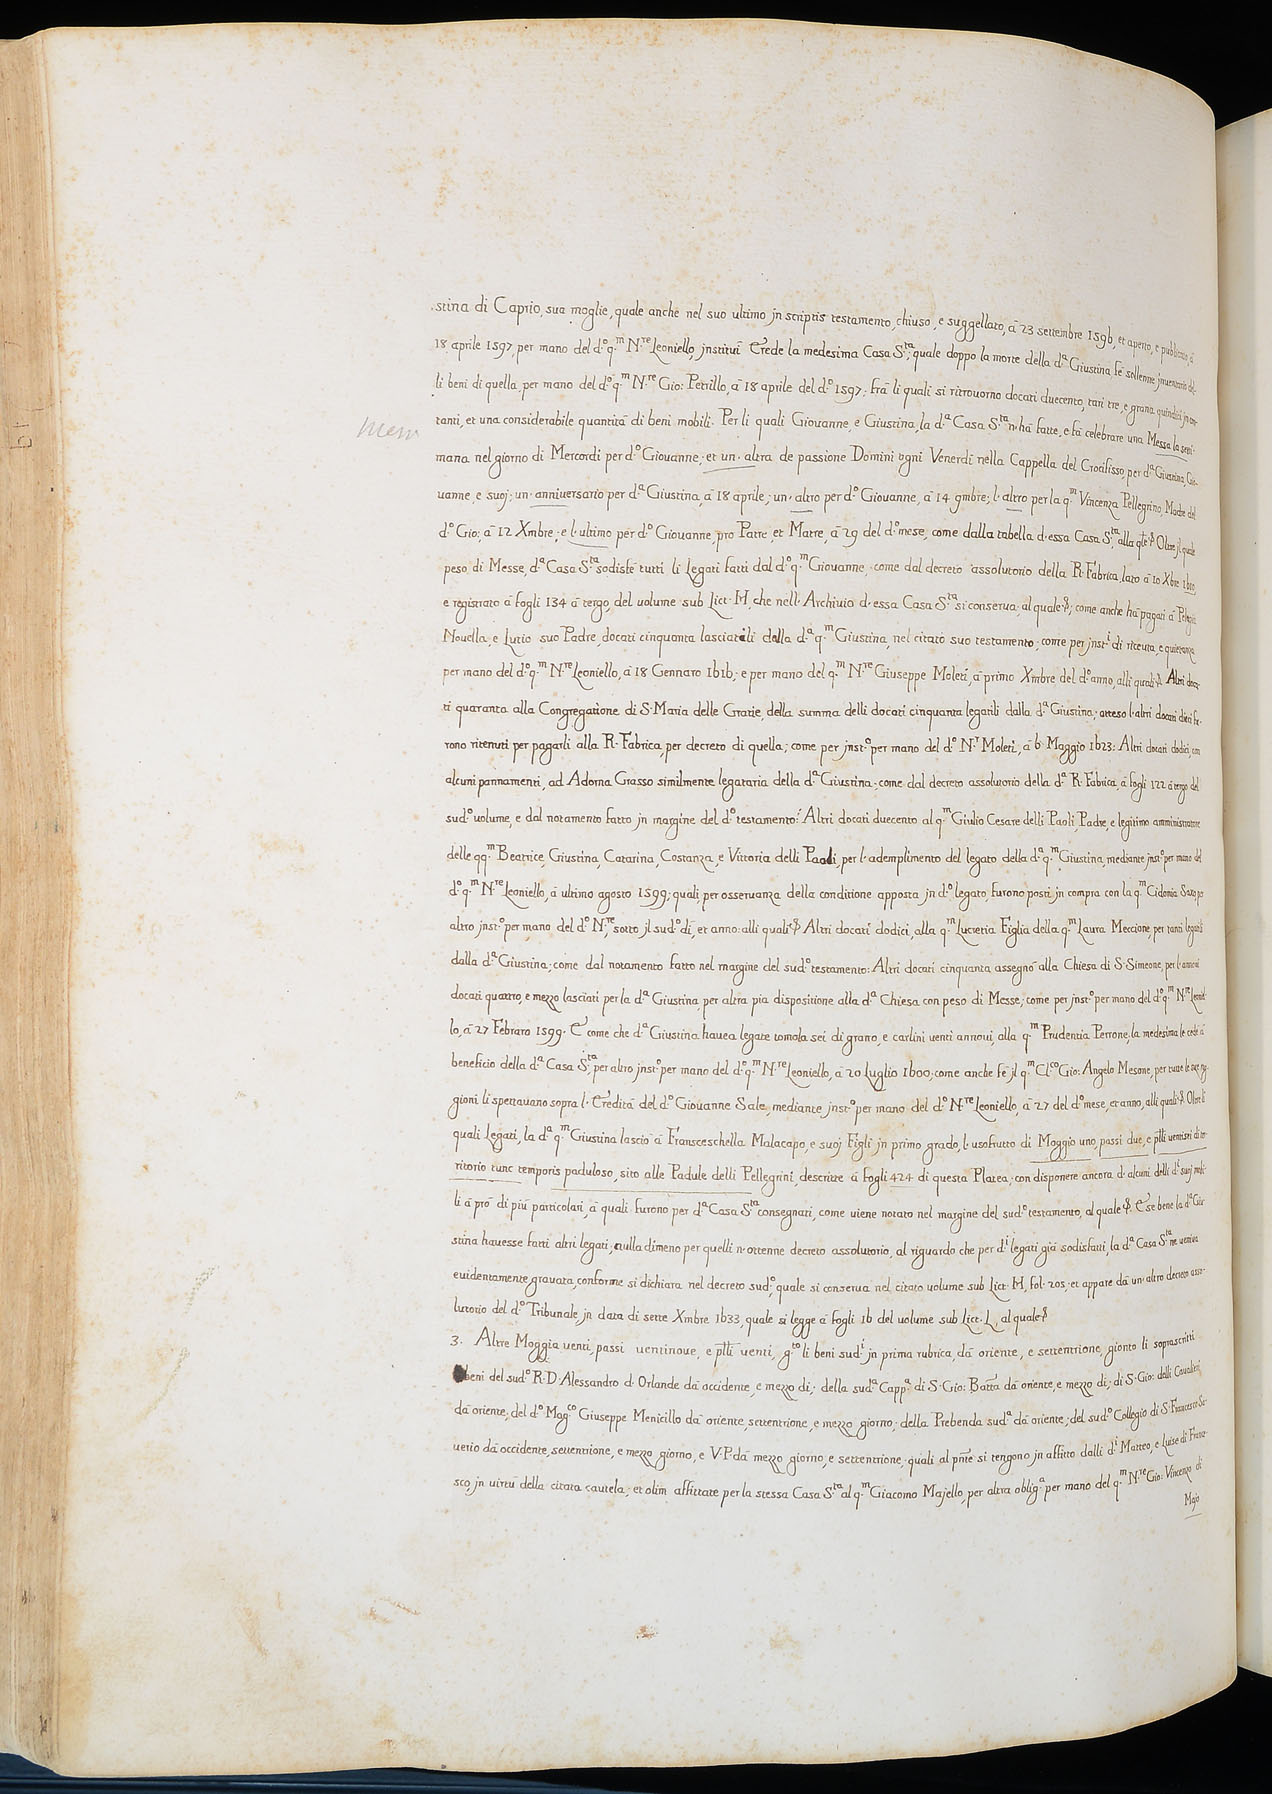 stina di Caprio, sua moglie, quale anche nel suo ultimo jn scriptis testamento, chiuso, e suggellato, à 23 settembre 1596, et aperto, e publicato, à
18 aprile 1597, per mano del d.º q.m N.re Leoniello, jnstituì Erede la medesima Casa S.ta; quale doppo la morte della d.a Giustina, fè sollenne jnuentario del-
li beni di quella, per mano del d.º q.m N.re Gio: Petrillo, à 18 aprile del d.º 1597; frà li quali si ritrouorno docati duecento, tari tre, e grana quindici jn con-
tanti, et una considerabile quantità di beni mobili. Per li quali Giouanne, e Giustina, la d.a Casa S.ta n'hà fatte, e fà celebrare una Messa la setti-
Messe
mana nel giorno di Mercordì per d.º Giouanne; et un'altra de passione Domini ogni Venerdì nella Cappella del Crocifisso, per d.a Giustina, Gio-
uanne, e suoj; un'anniuersario per d.a Giustina, à 18 aprile; un'altro per d.º Giouanne, à 14 9mbre; l'altro per la q.m Vincenza Pellegrino, Madre del
d.º Gio: à 12 Xmbre; e l'ultimo per d.º Giouanne, pro Patre, et Matre, à 29 del d.º mese, come dalla tabella d'essa Casa S.ta, alla qle &. Oltre jl quale
peso di Messe, d.a Casa S.ta sodisfè tutti li Legati fatti dal d.º q.m Giouanne, come dal decreto assolutorio della R. Fabrica, lato à 10 Xbre 1600,
e registrato à fogli 134 à tergo, del volume sub Lict. M, che nell'Archiuio d'essa Casa S.ta si conserua, al quale &; come anche hà pagati à
Nouella, e Lutio suo Padre, docati cinquanta lasciatili dalla d.a q.m Giustina, nel citato suo testamento; come per jnst.i di riceuta, e quietanza
per mano del d.º q.m N.re Leoniello, à 18 Gennaro 1616; e per mano del q.m N.re Giuseppe Moleti, à primo Xmbre del d.º anno, alli quali &. Altri doca-
ti quaranta alla Congregatione di S. Maria delle Gratie, della summa delli docati cinquanta legatili dalla d.a Giustina; atteso l'altri docati dieci fu-
rono ritenuti per pagarli alla R. Fabrica, per decreto di quella; come per jnst.º per mano del d.º N.r Moleti, à 6 Maggio 1623: Altri docati dodici, con
alcuni pannamenti, ad Adorna Grasso similmente legataria della d.a Giustina; come dal decreto assolutorio della d.a R. Fabrica, à fogli 122 à tergo del
sud.º volume, e dal notamento fatto jn margine del d.º testamento: Altri docati duecento al q.m Giulio Cesare delli Paoli, Padre, e legitimo amministratore
delle qq.m Beatrice, Giustina, Catarina, Costanza, e Vittoria delli Paoli, per l'adempimento del legato della d.a q.m Giustina, mediante jnst.º per mano del
d.º q.m N.re Leoniello, à ultimo agosto 1599; quali, per osseruanza della conditione apposta jn d.º legato, furono posti jn compra con la q.m Cidonia Saxo, per
altro jnst.º per mano del d.º N.re, sotto jl sud.º dì, et anno: alli quali &. Altri docati dodici, alla q.m Lucretia Figlia della q.m Laura Meccione, per tanti legatili
dalla d.a Giustina; come dal notamento fatto nel margine del sud.º testamento: Altri docati cinquanta assegnò alla Chiesa di S. Simeone, per l'annui
docati quattro, e mezzo lasciati per la d.a Giustina, per altra pia dispositione alla d.a Chiesa con peso di Messe; come per jnst.º per mano del d.º q.m N.re Leoniel-
lo, à 27 Febraro 1599. E come che d.a Giustina hauea legate tomola sei di grano, e carlini uenti annoui, alla q.m Prudentia Perrone, la medesima le cedè à
beneficio della d.a Casa S.ta, per altro jnst.º per mano del d.º q.m N.re Leoniello, à 20 Luglio 1600; come anche fè jl q.m Cl.co Gio: Angelo Mesone, per tutte le sue rag-
gioni li spettauano sopra l'Eredità del d.º Giouanne Sale, mediante jnst.º per mano del d.º N.re Leoniello, à 27 del d.º mese, et anno, alli quali &. Oltre li
quali Legati, la d.a q.m Giustina lasciò à Franceschella Malacapo, e suoj Figli jn primo grado, l'usofrutto di Moggio uno, passi due, e ptti uentisei di ter-
ritorio tunc temporis paduloso, sito alle Padule delli Pellegrini, descritte à fogli 424 di questa Platea; con disponere ancora d'alcuni delli d.i suoj mobi-
li à prò di più particolari, à quali furono per d.a Casa S.ta consegnati, come uiene notato nel margine del sud.º testamento, al quale &. E se bene la d.a Giu-
stina hauesse fatti altri legati; nulla dimeno per quelli n'ottenne decreto assolutorio, al riguardo che per d.i legati già sodisfatti, la d.a Casa S.ta ne ueniua
euidentemente grauata, conforme si dichiara nel decreto sud.º, quale si conserua nel citato volume sub Lict. M, fol. 205; et appare dà un'altro decreto asso-
lutorio del d.º Tribunale, jn data di sette Xmbre 1633, quale si legge à fogli 16 del uolume sub Lict. L, al quale &
3. Altre Moggia uenti, passi uentinoue, e ptti uenti, g.to li beni sud.i jn prima rubrica, dà oriente, e settentrione, gionto li soprascritti
beni del sud.º R. D. Alessandro d'Orlande dà occidente, e mezzo dì; della sud.a Capp.a di S. Gio: Batta dà oriente, e mezzo dì; di S. Gio: delli Caualieri
dà oriente; del d.º Mag.co Giuseppe Menicillo dà oriente, settentrione, e mezzo giorno; della Prebenda sud.a dà oriente; del sud.º Collegio di S. Francesco Sa-
uerio dà occidente, settentrione, e mezzo giorno, e V. P. dà mezzo giorno, e settentrione; quali al pñte si tengono jn affitto dalli d.i Matteo, e Luise di France-
sco, jn uirtù della citata cautela; et olim affittate per la stessa Casa S.ta al q.m Giacomo Majello, per altra oblig.a per mano del q.m N.re Gio: Vincenzo di
Majo